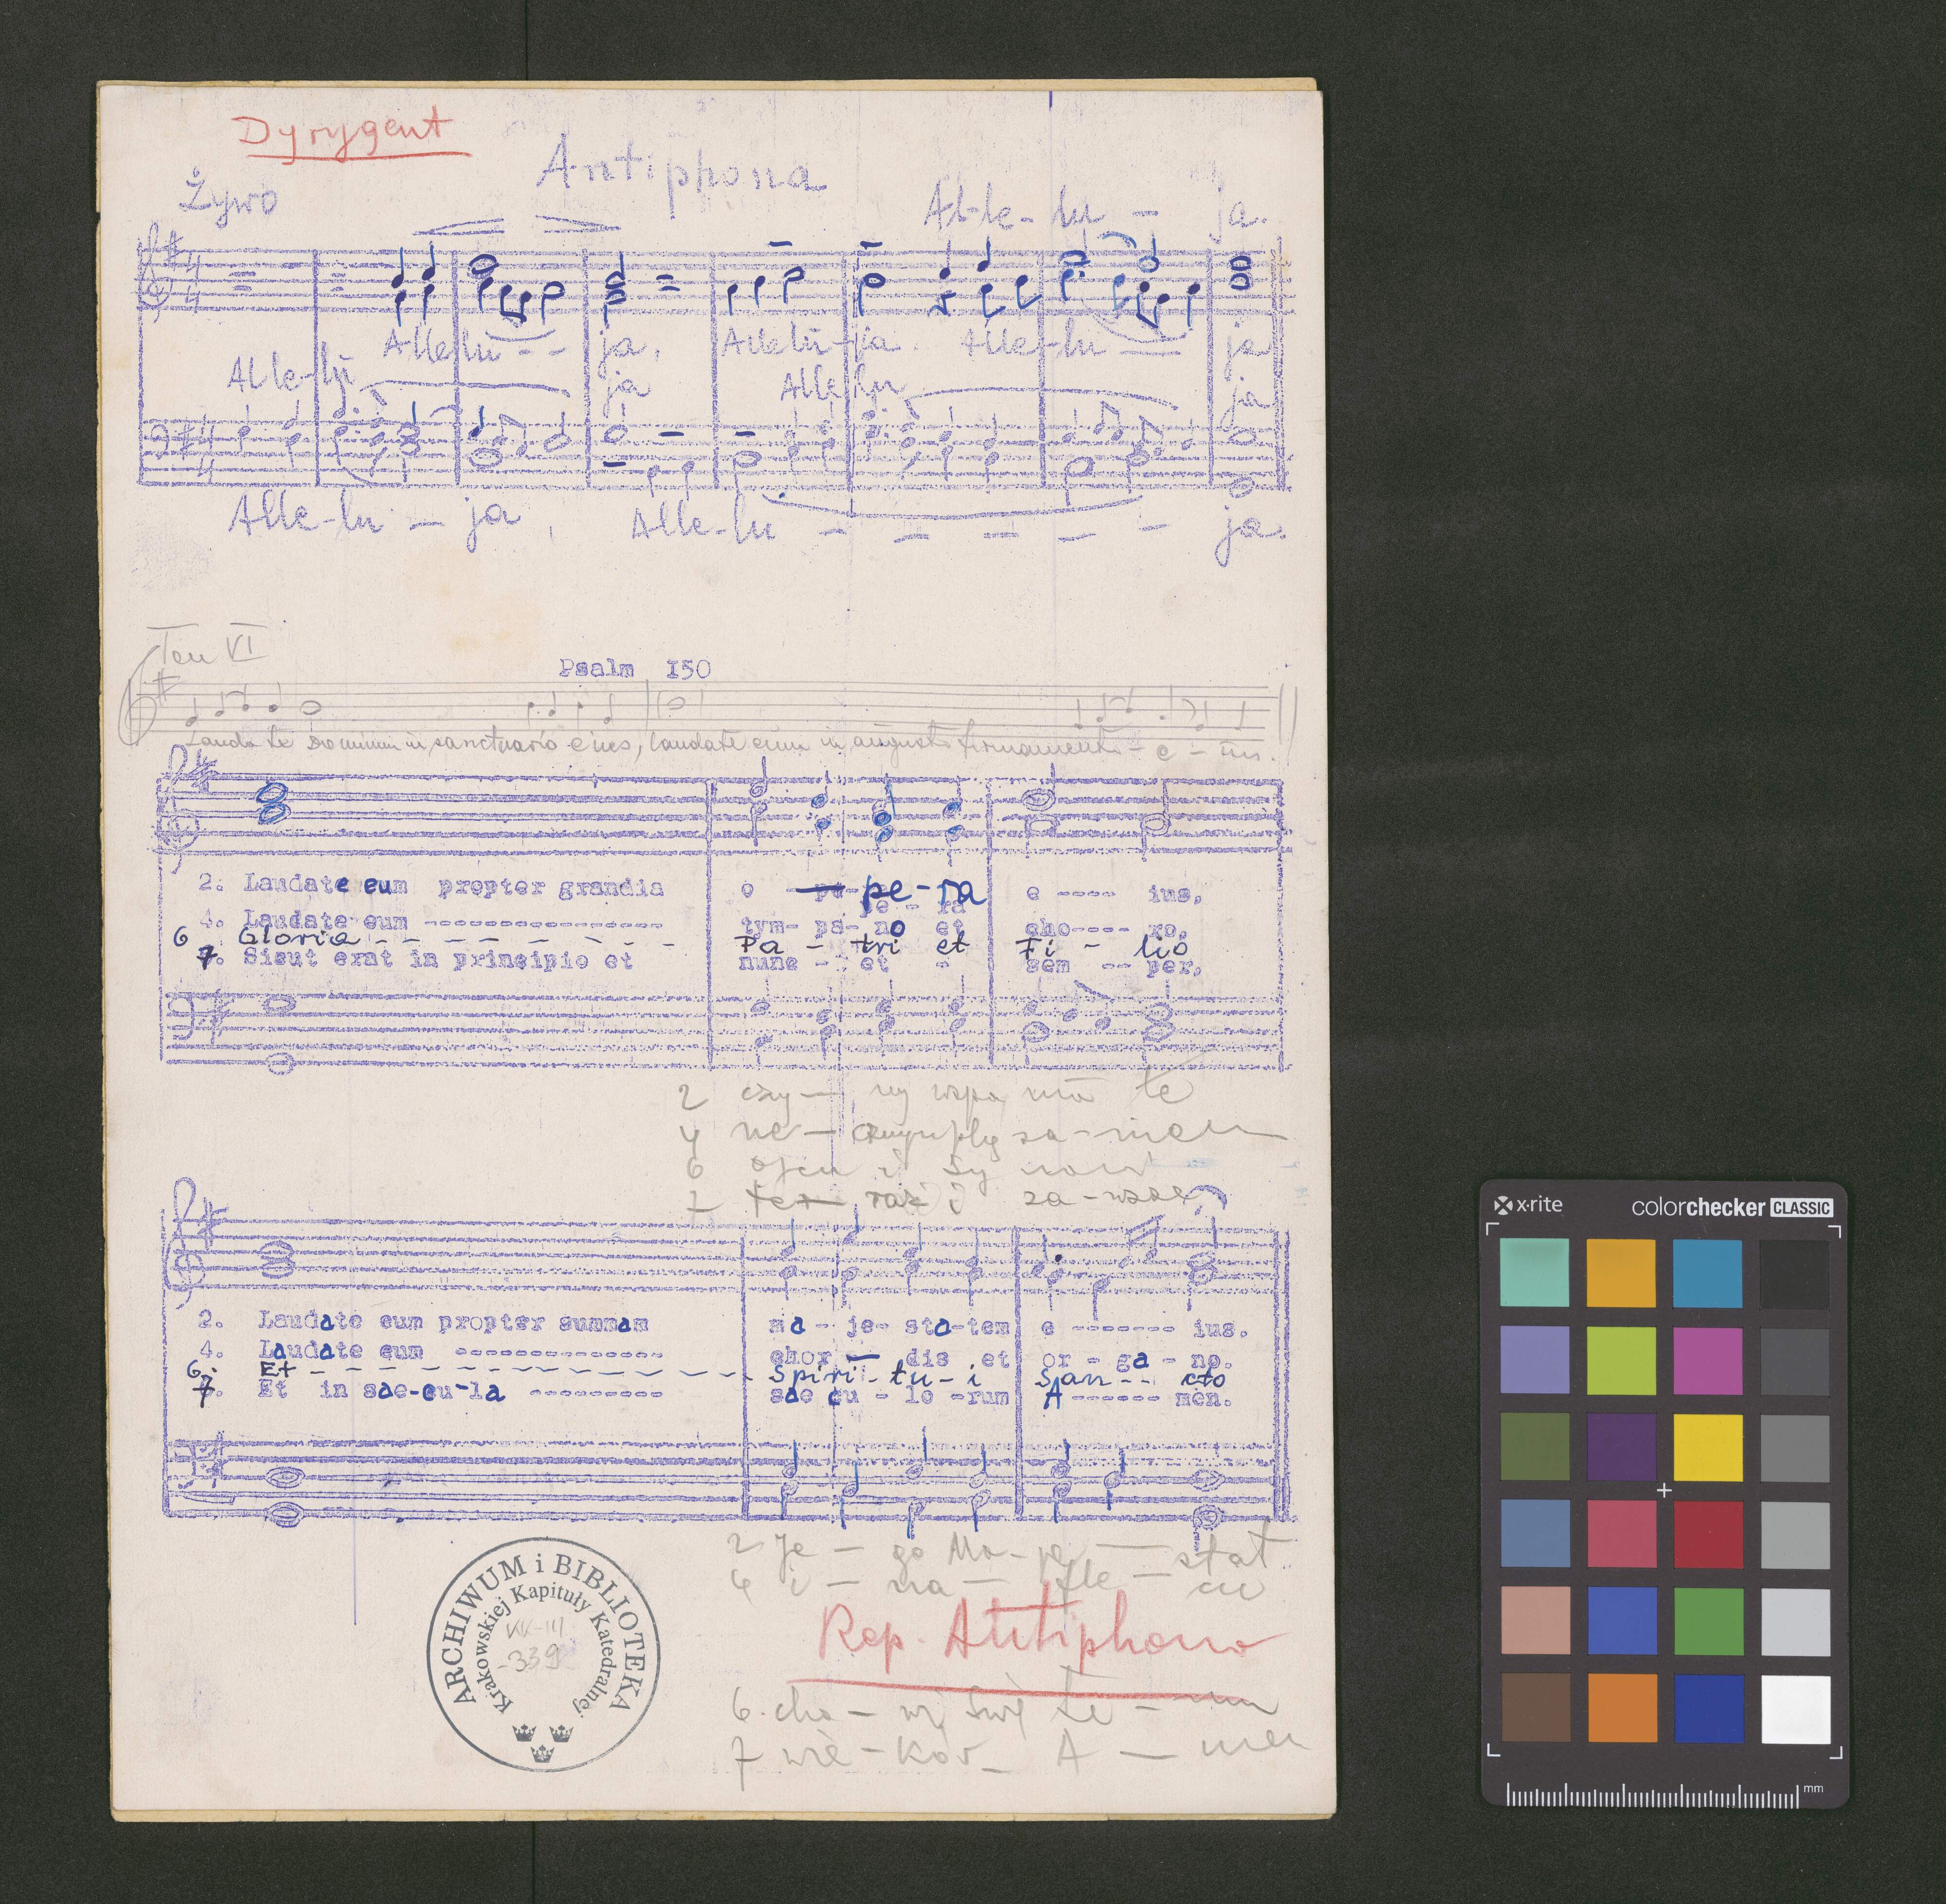 Dyrygent
Antiphona
Żywo
Al-le-lu - ja.
Allelu - - ja, Allelu-ja. Alle-lu — ja
Alle-lu ja Allelu ja
Alle-lu - ja, Alle-lu - - - - - ja.
Ton VI
Psalm I50
Laudate Dominum in sanctuario eius, laudate eum in augusto firmamento - e - ius.
2. Laudate eum propter grandia o pe-ra e ---- ius,
4. Laudate eum ----------------- tym- pa- no et cho---- ro,
6 Gloria - - - - - - - - Pa - tri et Fi - lio
7. Sicut erat in principio et nunc - et - sem -- per,
2 czy — ny wspa nia łe
4 ne — sa-mem
6 Ojcu i Sy nowi
7 te raz i za-wsze
2. Laudate eum propter summam ma - je- sta-tem e ------- ius.
4. Laudate eum -------------- chor — dis et or - ga - no.
6. Et - - - - - - - - - - - Spiri - tu - i San -- cto
7. Et in sae-cu-la --------- sae cu - lo -rum A ------ men.
2 Je — go Ma-je — stat
4 i — na — fle — cie
Rep. Antiphona
6. cho — wi Świę te - mu
7 wie - ków - A — men
ARCHIWUM i BIBLIOTEKA
Krakowskiej Kapituły Katedralnej
KK-III
-339
x·rite colorchecker CLASSIC
mm